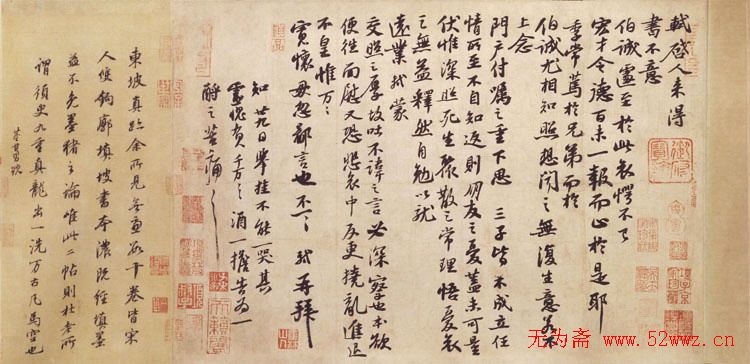 軾啓人來得
書不意
伯誠遽至於此哀愕不已
宏才令德百未一報而止於是耶
季常篤於兄弟而於
伯誠尤相知照想聞之無復生意若不
上念
門戶付囑之重下思三子皆未成立任
情所至不自知返則朋友之憂蓋未可量
伏惟深照死生聚散之常理悟憂哀
之無益釋然自勉以就
遠業軾蒙
交照之厚故吐不諱之言必深察也本欲
便往面慰又恐悲哀中反更撓亂進退
不皇惟万万
寬懷毋忽鄙言也不一一軾再拜
知廿九日舉挂不能一哭其
靈愧負千万千万酒一擔告為一
酹之苦痛苦痛
東坡真跡余所見無慮數十卷皆宋
人雙鉤廓填坡書本濃既經填墨
蓋不免墨豬之論唯此二帖則杜老所
謂須臾九重真龍出一洗万古凡馬空也
董其昌跋
无为斋 www.52wwz.cn